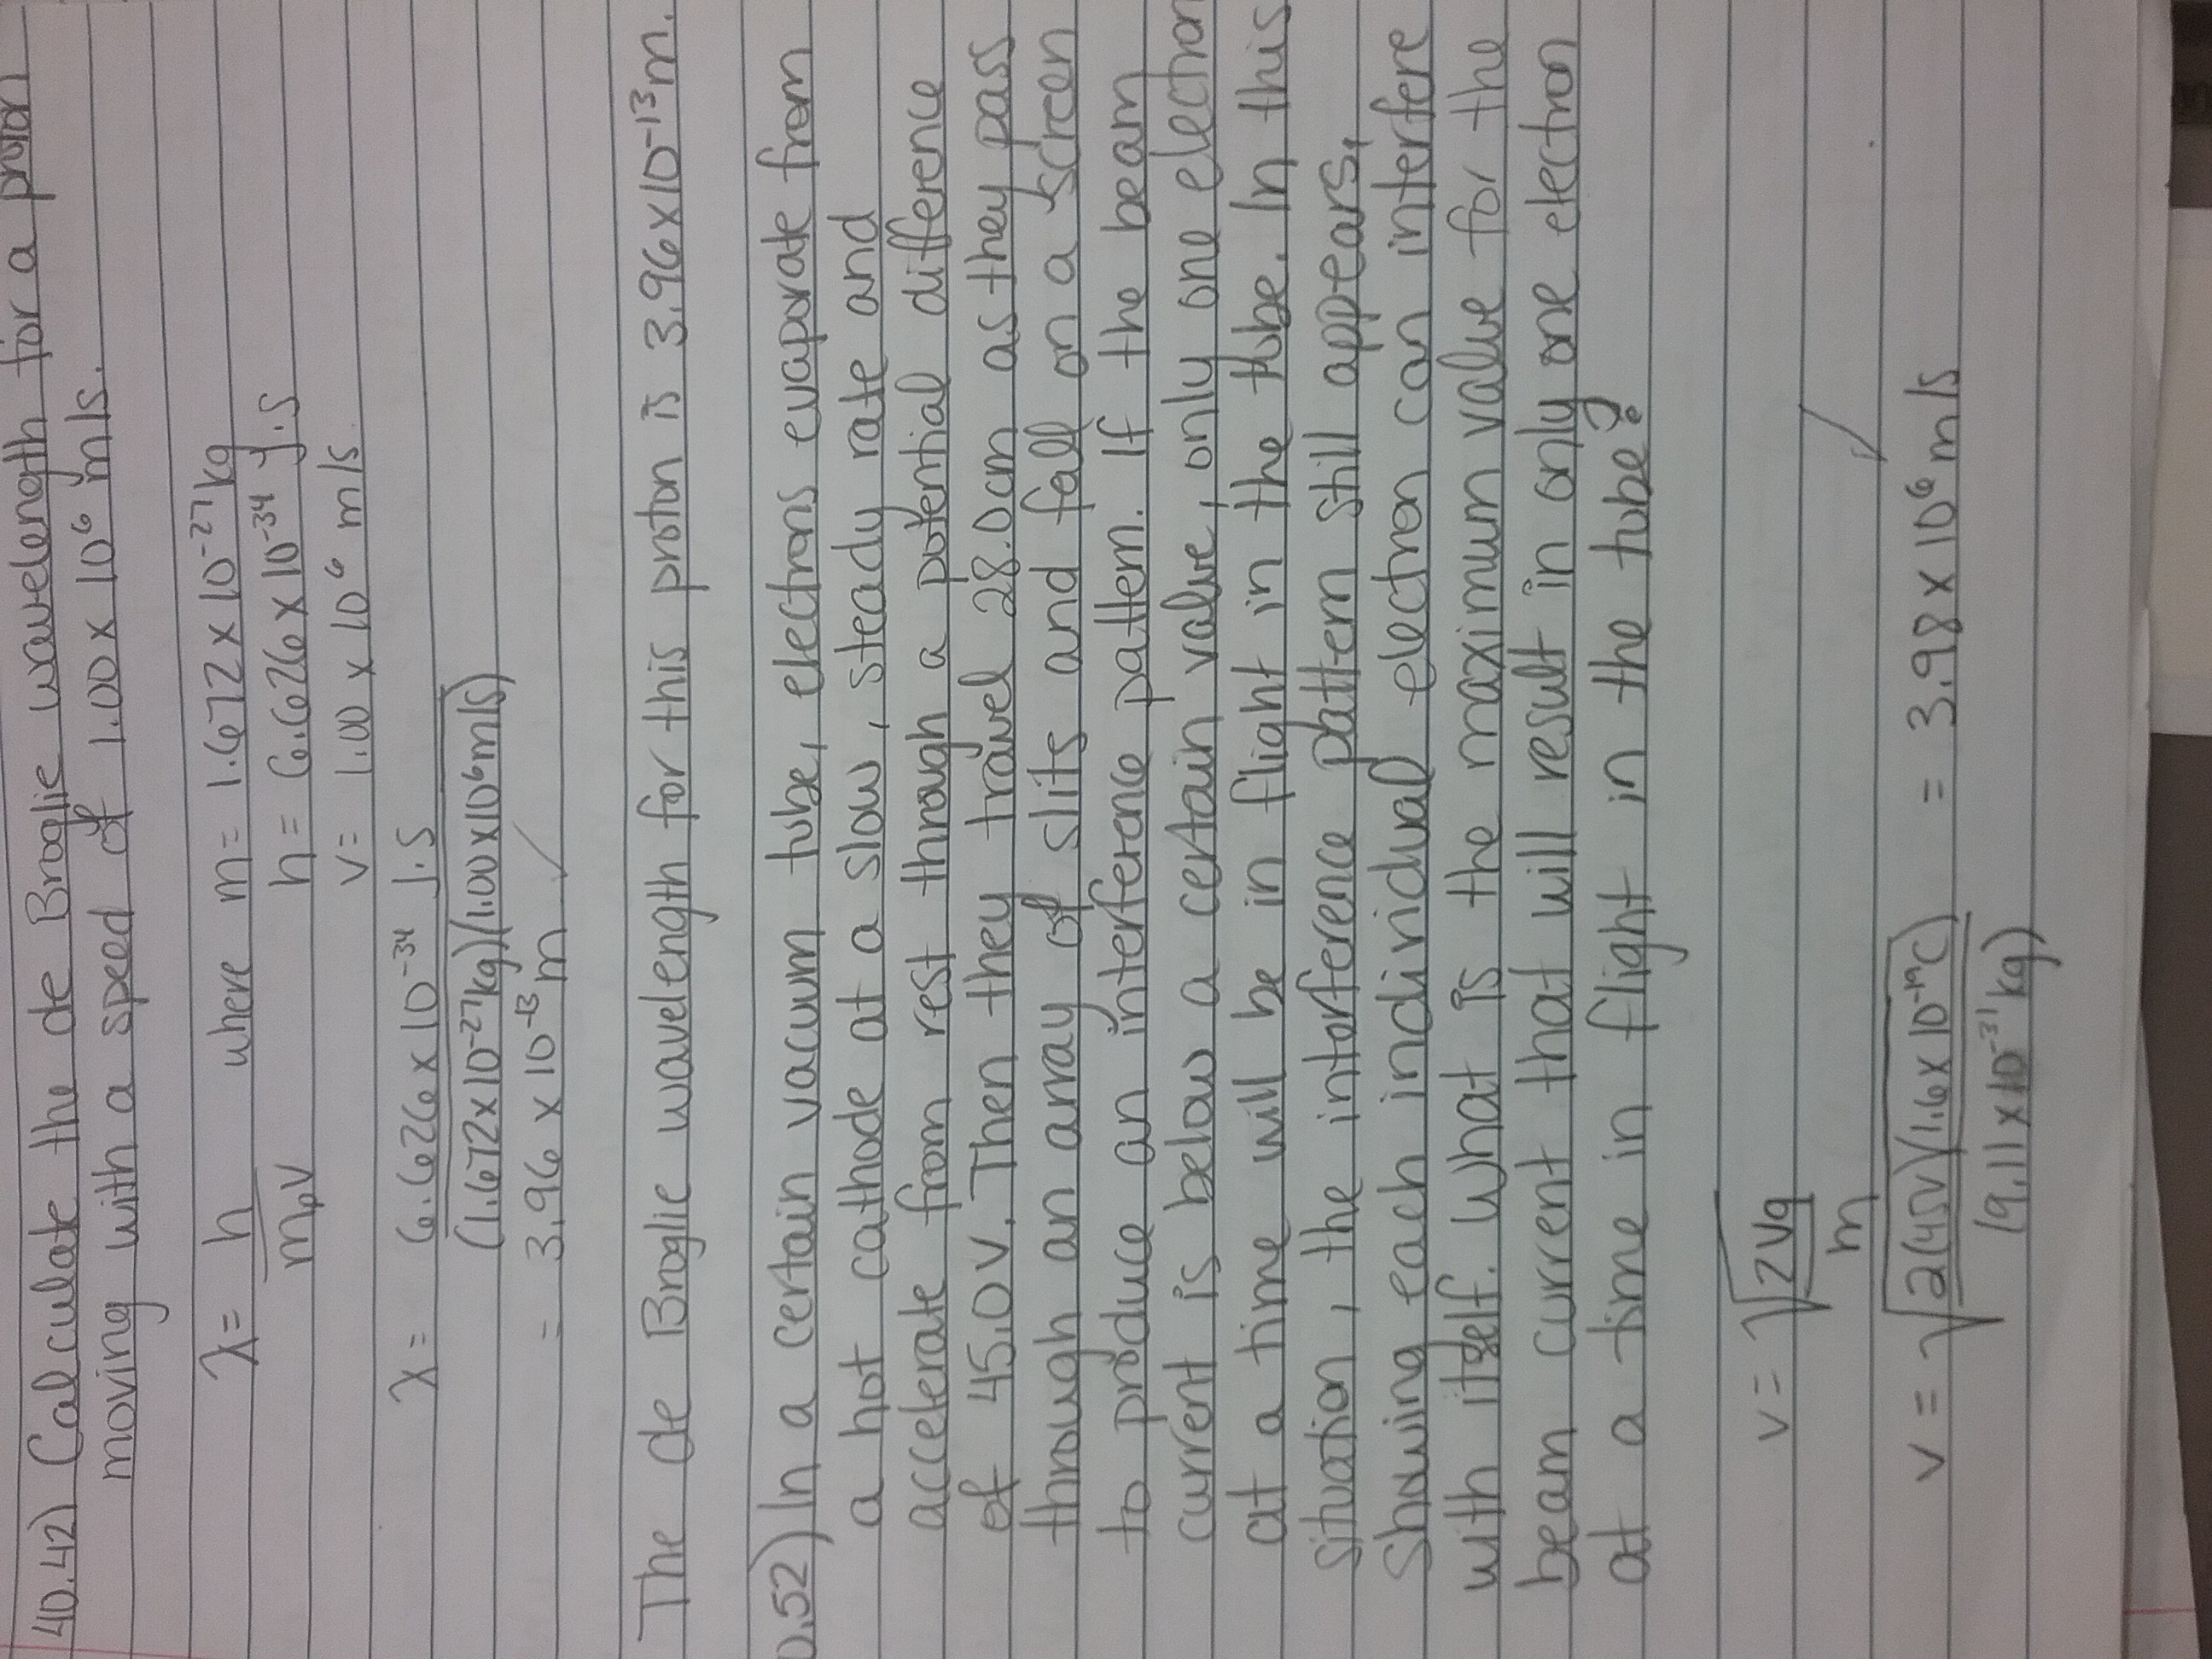 40.42) Calculate the de Broglie wavelength for a proton
moving with a speed of 1.00 x 10⁶ m/s.
λ = h/mₚv where m = 1.672 x 10⁻²⁷ kg
h = 6.626 x 10⁻³⁴ J·s
v = 1.00 x 10⁶ m/s
λ = 6.626 x 10⁻³⁴ J·s
(1.672 x 10⁻²⁷ kg)(1.00 x 10⁶ m/s)
= 3.96 x 10⁻¹³ m
The de Broglie wavelength for this proton is 3.96 x 10⁻¹³ m.
0.52) In a certain vacuum tube, electrons evaporate from
a hot cathode at a slow, steady rate and
accelerate from rest through a potential difference
of 45.0 V. Then they travel 28.0 cm as they pass
through an array of slits and fall on a screen
to produce an interference pattern. If the beam
current is below a certain value, only one electron
at a time will be in flight in the tube. In this
situation, the interference pattern still appears,
showing each individual electron can interfere
with itself. What is the maximum value for the
beam current that will result in only one electron
at a time in flight in the tube?
v = √2Vq/m
v = √2(45V)(1.6 x 10⁻¹⁹C) = 3.98 x 10⁶ m/s
(9.11 x 10⁻³¹ kg)